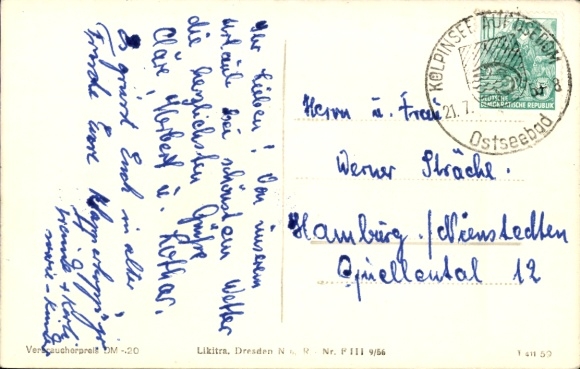 Ihr Lieben! Von unserem
Urlaub bei schönstem Wetter
die herzlichsten Grüße
Cläre, Herbert u. Lothar.
Es grüsst Euch in alter
Freude Eure
KÖLPINSEE AUF USEDOM
21.7.
Ostseebad
DEUTSCHE
DEMOKRATISCHE REPUBLIK
Herrn u. Frau
Werner Sträche.
Hamburg/Nienstedten
Quellental 12
Verbraucherpreis DM -.20
Likitra, Dresden N 6, R - Nr. F III 9/56